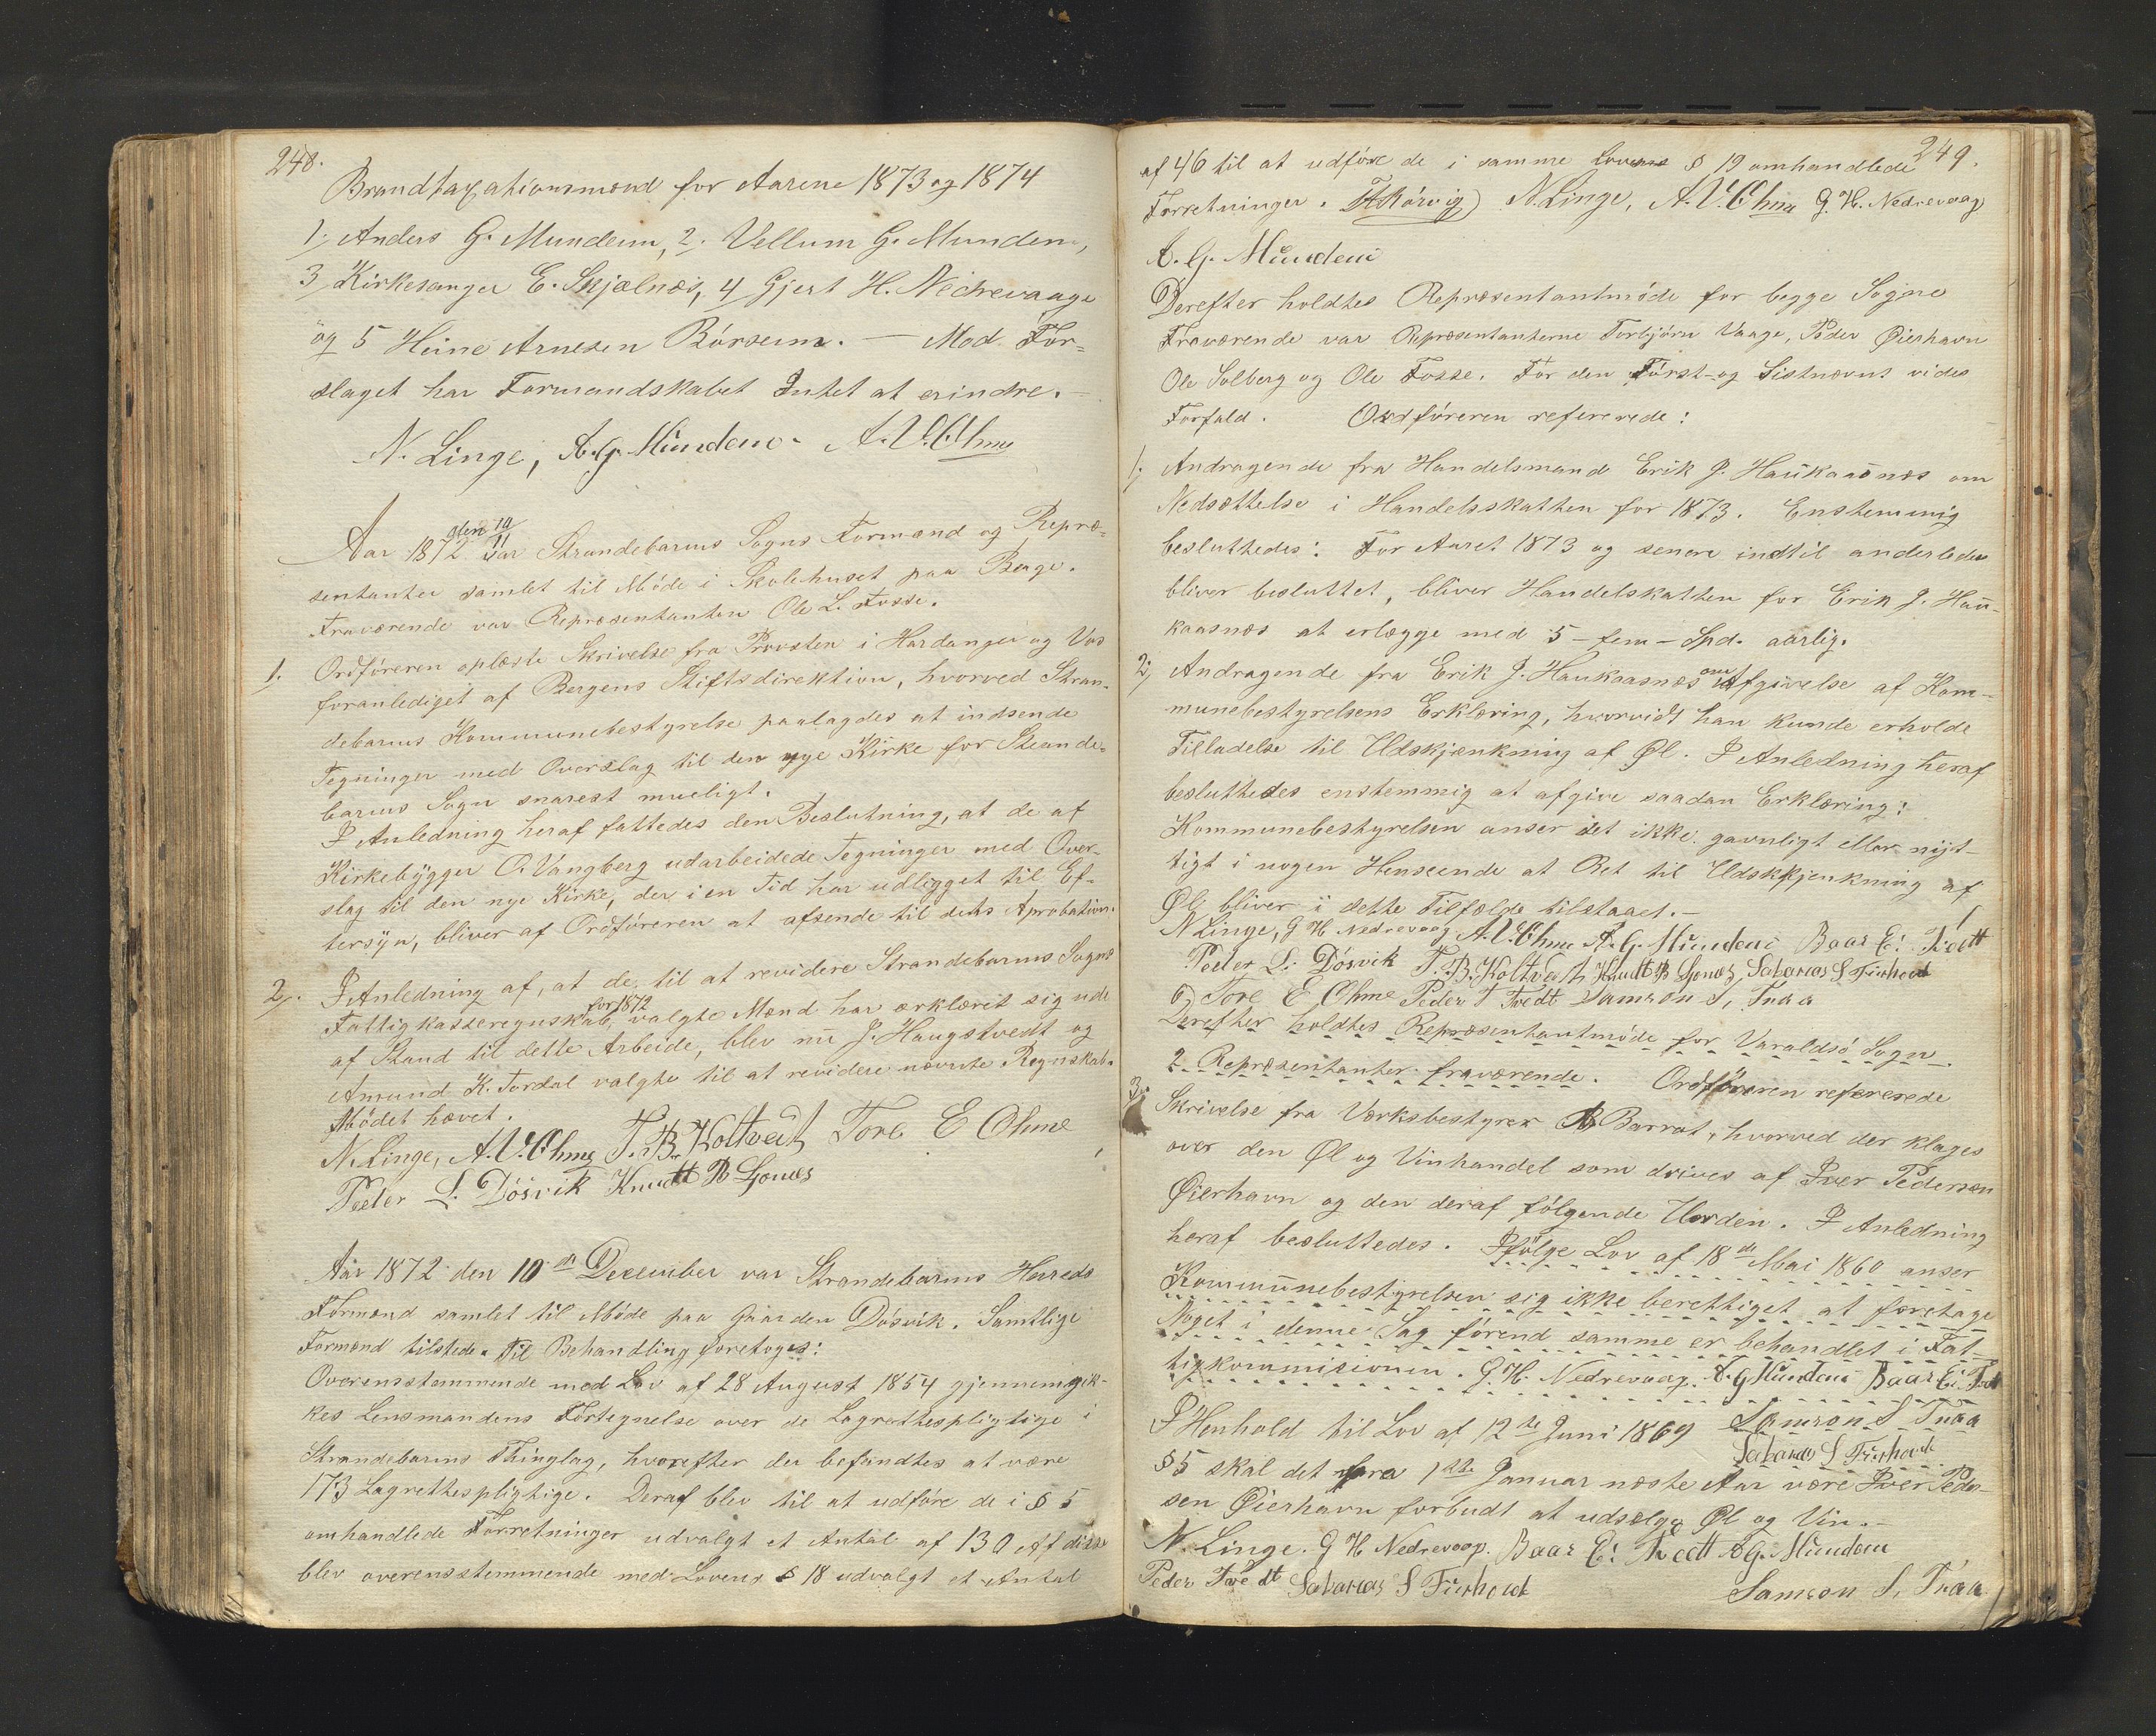 248.
Brandtaxationsmænd for Aarene 1873 og 1874
1, Anders G. Mundem, 2. Vellum G. Mundem,
3, Kirkesanger E. Skjælnæs, 4, Gjert H. Nedrevaage
og 5 Heine Arnesen Börsem. — Mod For-
slaget har Formandskabet Intet at erindre. —
N. Linge, A. G. Mundem. A. V. Ohme
den 19/11
Aar 1872 var Strandebarms Sogns Formænd og Repræ-
sentanter samlet til Möde i Skolehuset paa Berge.
Fraværende var Repræsentanten Ole L. Fosse.
1. Ordföreren oplæste Skrivelse fra Provsten i Hardanger og Vos
foranlediget af Bergens Stiftsdirektion, hvorved Stran-
debarms Kommunebestyrelse paalagdes at indsende
Tegninger med Overslag til den nye Kirke for Strande-
barms Sogn snarest mueligt.
I Anledning heraf fattedes den Beslutning, at de af
Kirkebygger O. Vangberg udarbeidede Tegninger med Over-
slag til den nye Kirke, der i en Tid har udligget til Ef-
tersyn, bliver af Ordföreren at afsende til dets Aprobation.
2, I Anledning af, at de til at revidere Strandebarms Sogns
Fattigkasseregnskab for 1872 valgte Mænd har erklæret sig ude
af Stand til dette Arbeide, blev nu J. Haugstvedt og
Amund K. Tordal valgte til at revidere nævnte Regnskab.
Mödet hævet.
N. Linge, A. V. Ohme T. B. Koltveit Tore E Ohme,
Peeter L. Dösvik Knudt B Ljones
Aar 1872 den 10de December var Strandebarms Herreds
Formænd samlet til Möde paa Gaarden Dösvik. Samtlige
Formænd tilstede. Til Behandling foretoges:
Overensstemmende med Lov af 28 August 1854 gjennemgik-
kes Lensmandens Fortegnelse over de Lagrettespligtige i
Strandebarms Thinglag, hvorefter der befandtes at være
173 Lagrettespligtige. Deraf blev til at udföre de i § 5
omhandlede Forretninger udvalgt et Antal af 130 Af disse
blev overensstemmende med Lovens § 18 udvalgt et Antal
249.
af 46 til at udföre de i samme Lovens § 19 omhandlede
Forretninger. N. Linge, A. V. Ohme G. H. Nedrevaag
A. G. Mundem
Derefter holdtes Repræsentantmöde for begge Sogne
Fraværende var Repræsentanterne Torbjörn Vaage, Peder Øierhavn
Ole Solberg og Ole Fosse. For den Först- og Sistnævnt vides
Forfald. Ordföreren refererede:
1, Andragende fra Handelsmand Erik J. Haukaasnæs om
Nedsættelse i Handelsskatten for 1873. Enstemmig
besluttedes: For Aaret 1873 og senere indtil anderledes
bliver besluttet, bliver Handelskatten for Erik J. Hau-
kaasnæs at erlægge med 5 – fem – Spd. aarlig.
2, Andragende fra Erik J. Haukaasnæs om Afgivelse af Kom-
munebestyrelsens Erklæring, hvorvidt han kunde erholde
Tilladelse til Udskjænkning af Øl. I Anledning heraf
besluttedes enstemmig at afgive saadan Erklæring:
Kommunebestyrelsen anser det ikke gavnligt eller nyt-
tigt i nogen Henseende at Ret til Udskjenkning af
Øl bliver i dette Tilfælde tilstaaet. —
N Linge, G H Nedrevaag A. V. Ohme A. G. Mundem Baar E. Tvedt
Peeter L. Dösvik T. B. Koltveit Knudt B Ljones, S Tirhoud
Tore E Ohme Peder T Tvedt Samson S, Tuaa
Derefter holdtes Repræsentantmöde for Varaldsö Sogn
2 Repræsentanter fraværende. Ordföreren refererede
3. Skrivelse fra Værksbestyrer Barrat, hvorved der klages
over den Øl og Vinhandel som drives af Iver Pedersen
Øierhavn og den deraf fölgende Uorden. I Anledning
heraf besluttedes. Ifölge Lov af 18de Mai 1860 anser
Kommunebestyrelsen sig ikke berettiget at foretage
Noget i denne Sag förend samme er behandlet i Fat-
tigkommisionen. G. H. Nedrevaag. A. G Mundem Baar E. Tvedt
I Henhold til Lov af 12te Juni 1869 Samson S Tuaa
S Tirhoud
§ 5 skal det fra 1ste Januar næste Aar være Iver Peder-
sen Øierhavn forbudt at udsælge Øl og Vin. —
N. Linge. G H Nedrevaag. Baar E. Tvedt A G. Mundem
Peder Tvedt S Tirhoud Samson S, Tuaa